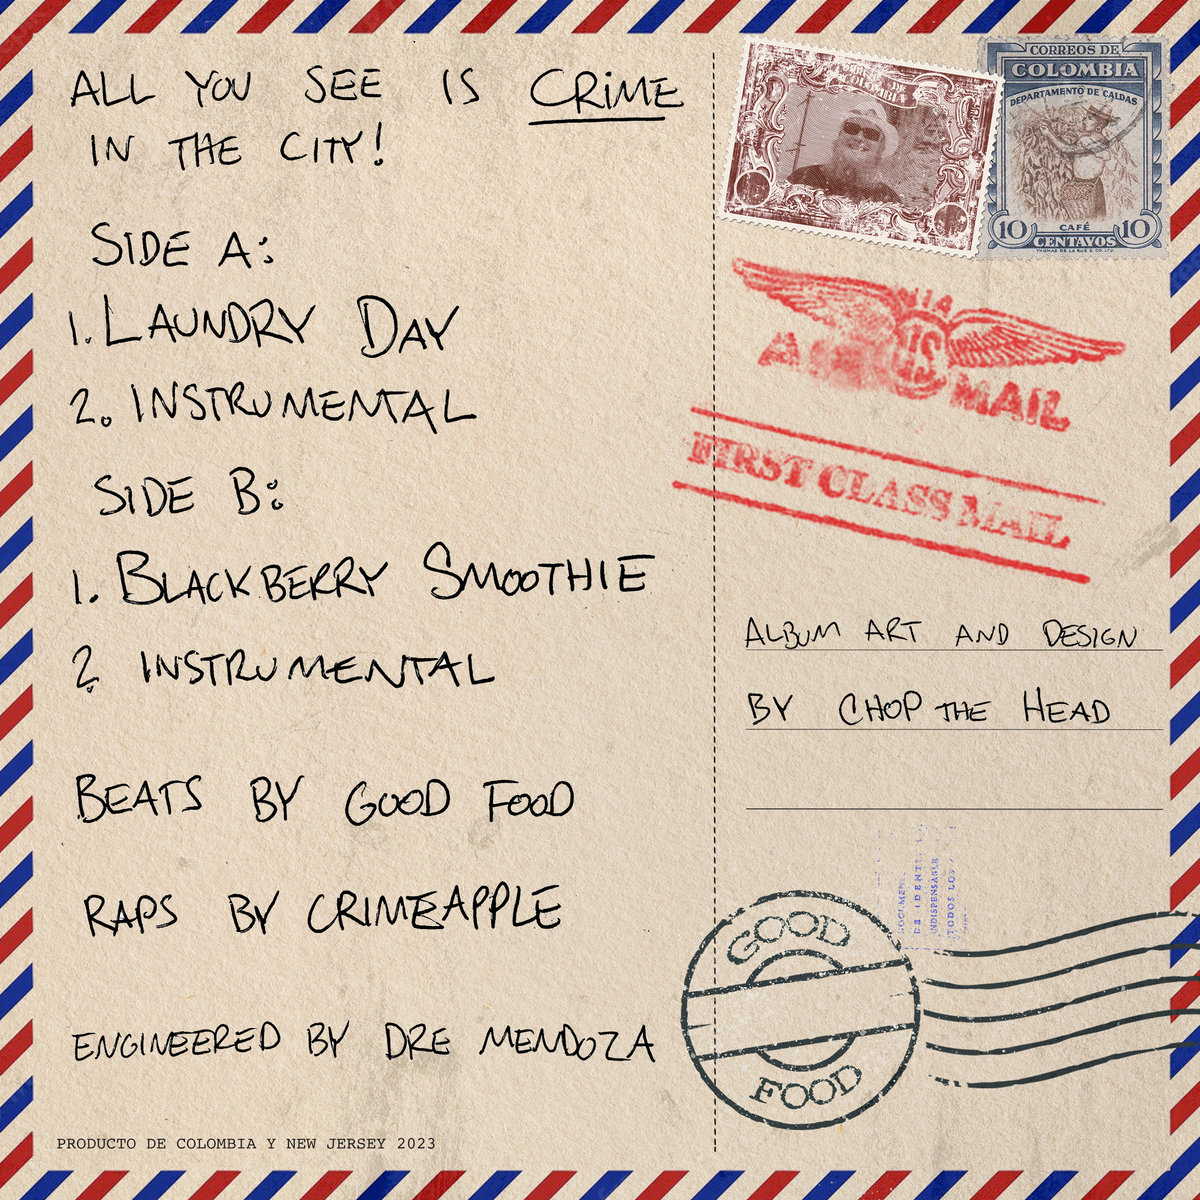 ALL YOU SEE IS CRIME
IN THE CITY!
SIDE A:
1. LAUNDRY DAY
2. INSTRUMENTAL
SIDE B:
1. BLACKBERRY SMOOTHIE
2. INSTRUMENTAL
BEATS BY GOOD FOOD
RAPS BY CRIMEAPPLE
ENGINEERED BY DRE MENDOZA
PRODUCTO DE COLOMBIA Y NEW JERSEY 2023
COLOMBIA
CORREOS DE
COLOMBIA
DEPARTAMENTO DE CALDAS
10 CAFÉ 10
CENTAVOS
THOMAS DE LA RUE & CO. LTD.
VIA
US
MAIL
FIRST CLASS MAIL
ALBUM ART AND DESIGN
BY CHOP THE HEAD
DE IDENTI
INDISPENSABLE
TODOS LOS
GOOD
FOOD